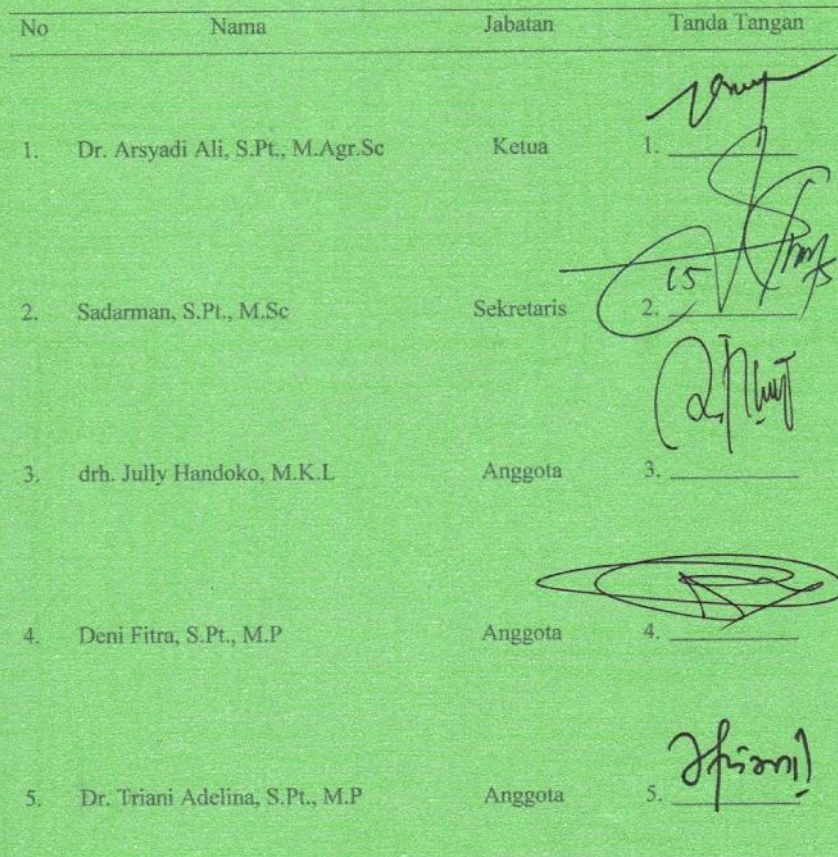 No Nama Jabatan Tanda Tangan
1. Dr. Arsyadi Ali, S.Pt., M.Agr.Sc Ketua 1.
2. Sadarman, S.Pt., M.Sc Sekretaris 2.
3. drh. Jully Handoko, M.K.L Anggota 3.
4. Deni Fitra, S.Pt., M.P Anggota 4.
5. Dr. Triani Adelina, S.Pt., M.P Anggota 5.